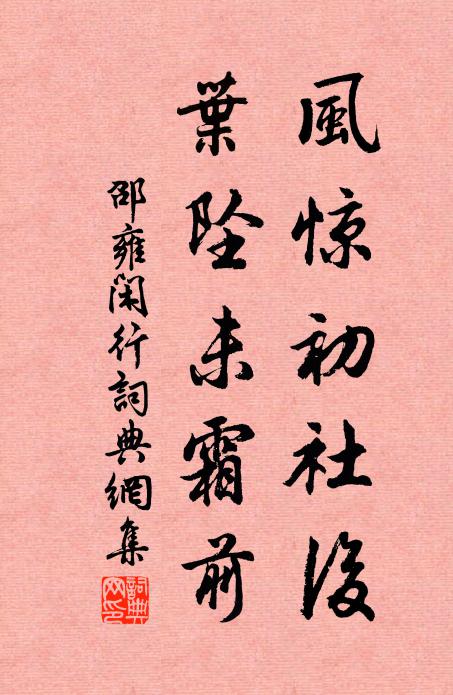 風惊初社後
葉坠未霜前
邵雍閑行詞典網集